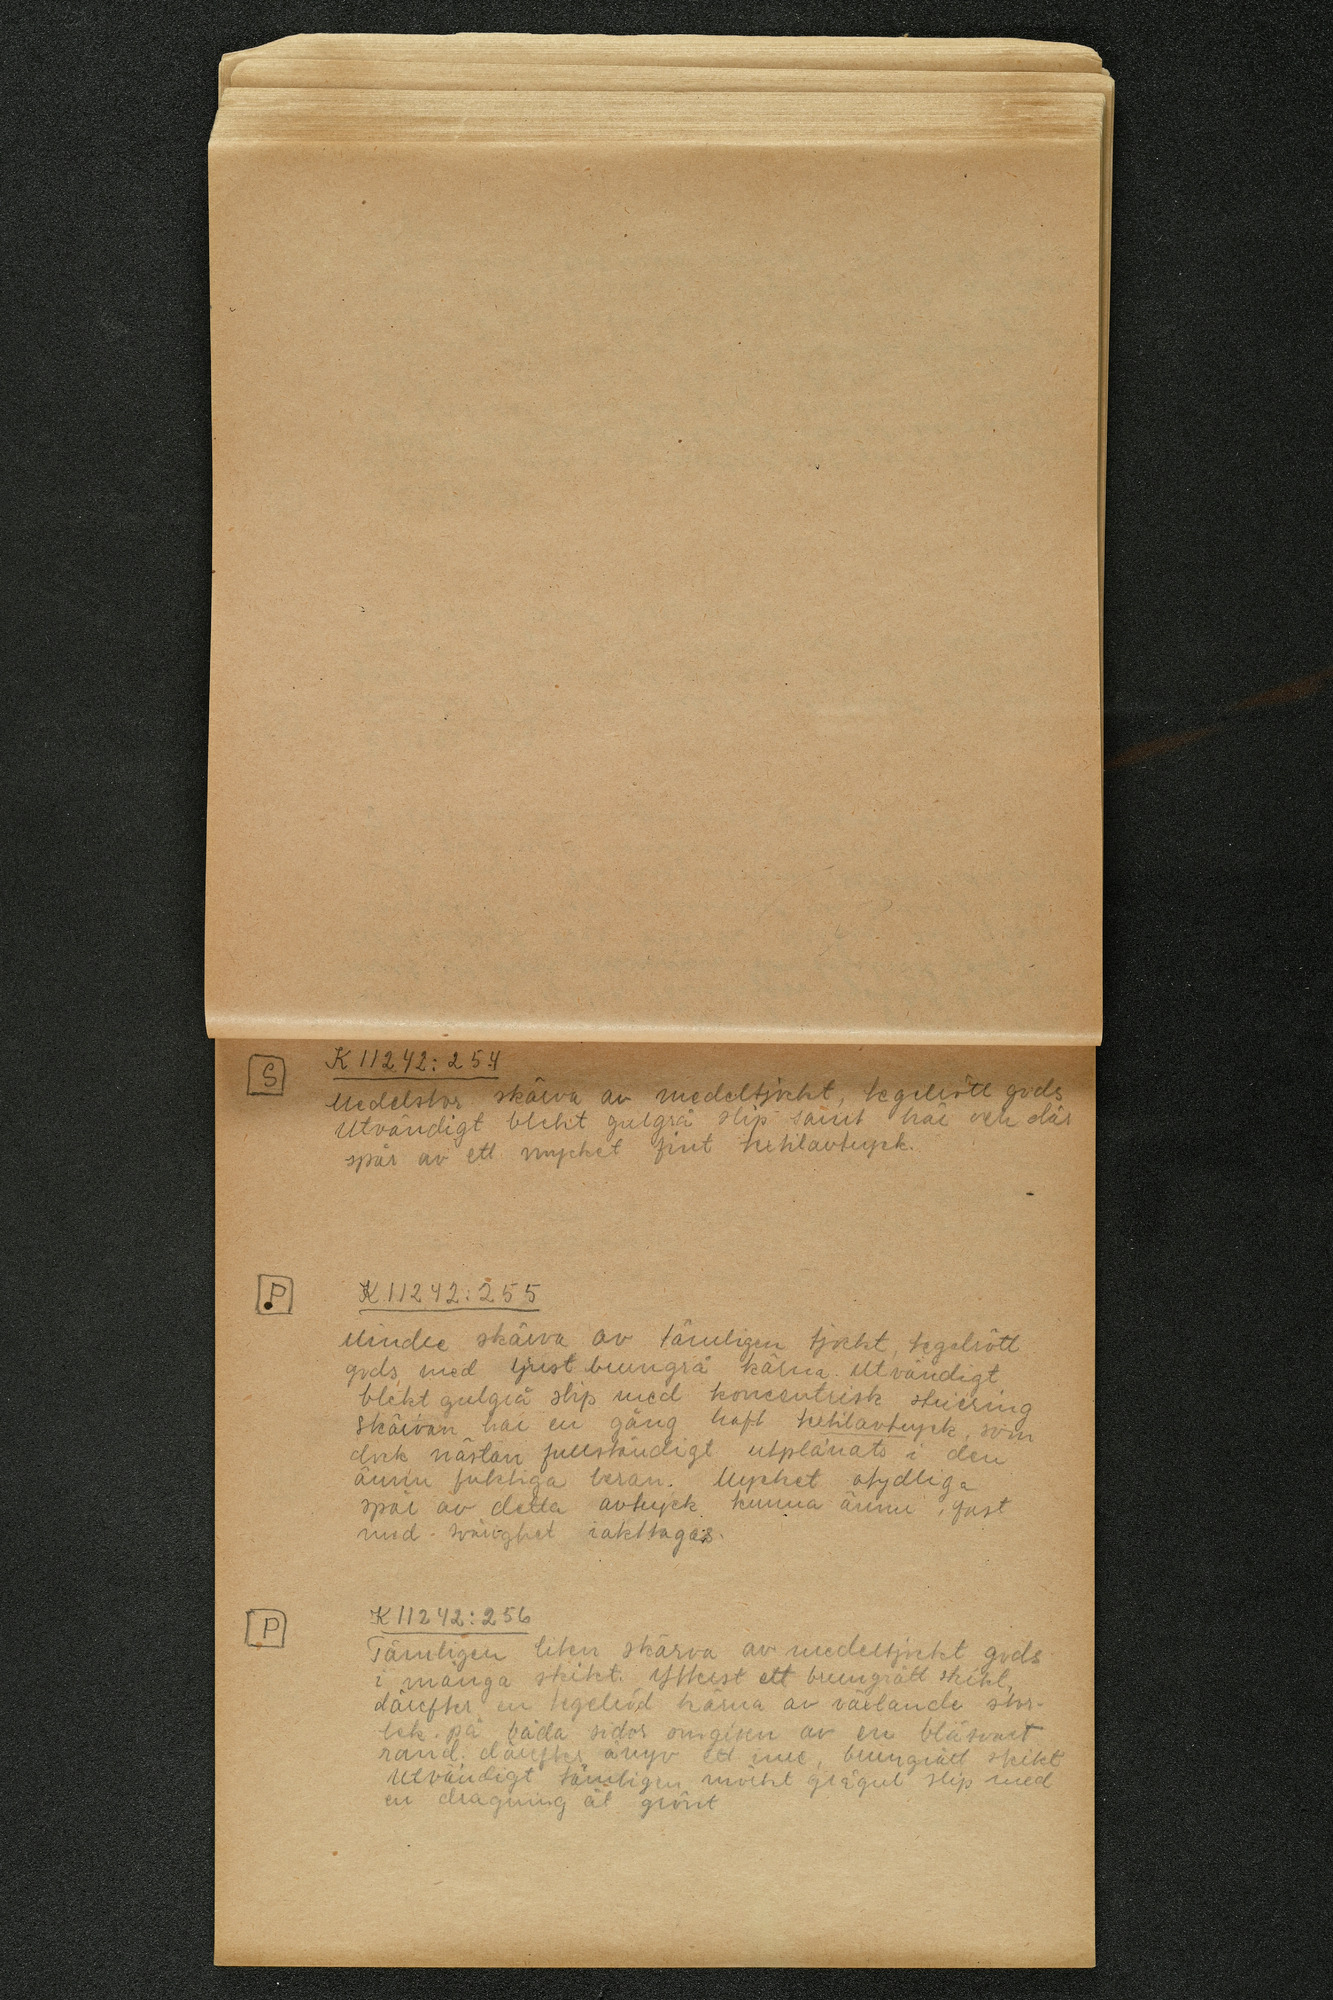 S K 11242:254
Medelstor skärva av medeltjockt, tegelrött gods
Utvändigt blekt gulgrå slip samt här och där
spår av ett mycket fint textilavtryck.
P K 11242:255
Mindre skärva av tämligen tjockt, tegelrött
gods, med ljust brungrå kärna. Utvändigt
blekt gulgrå slip med koncentrisk striering
Skärvan har en gång haft textilavtryck, som
dock nästan fullständigt utplånats i den
ännu fuktiga leran. Mycket otydliga
spår av detta avtryck kunna ännu, fast
med svårighet iakttagas.
P K 11242:256
Tämligen liten skärva av medeltjockt gods
i många skikt. Ytterst ett brungrått skikt,
därefter en tegelröd kärna av växlande stor-
lek på båda sidor omgiven av en blåsvart
rand, därefter ånyo ett inre, brungrått skikt
Utvändigt tämligen mörkt grågul slip med
en dragning åt grönt